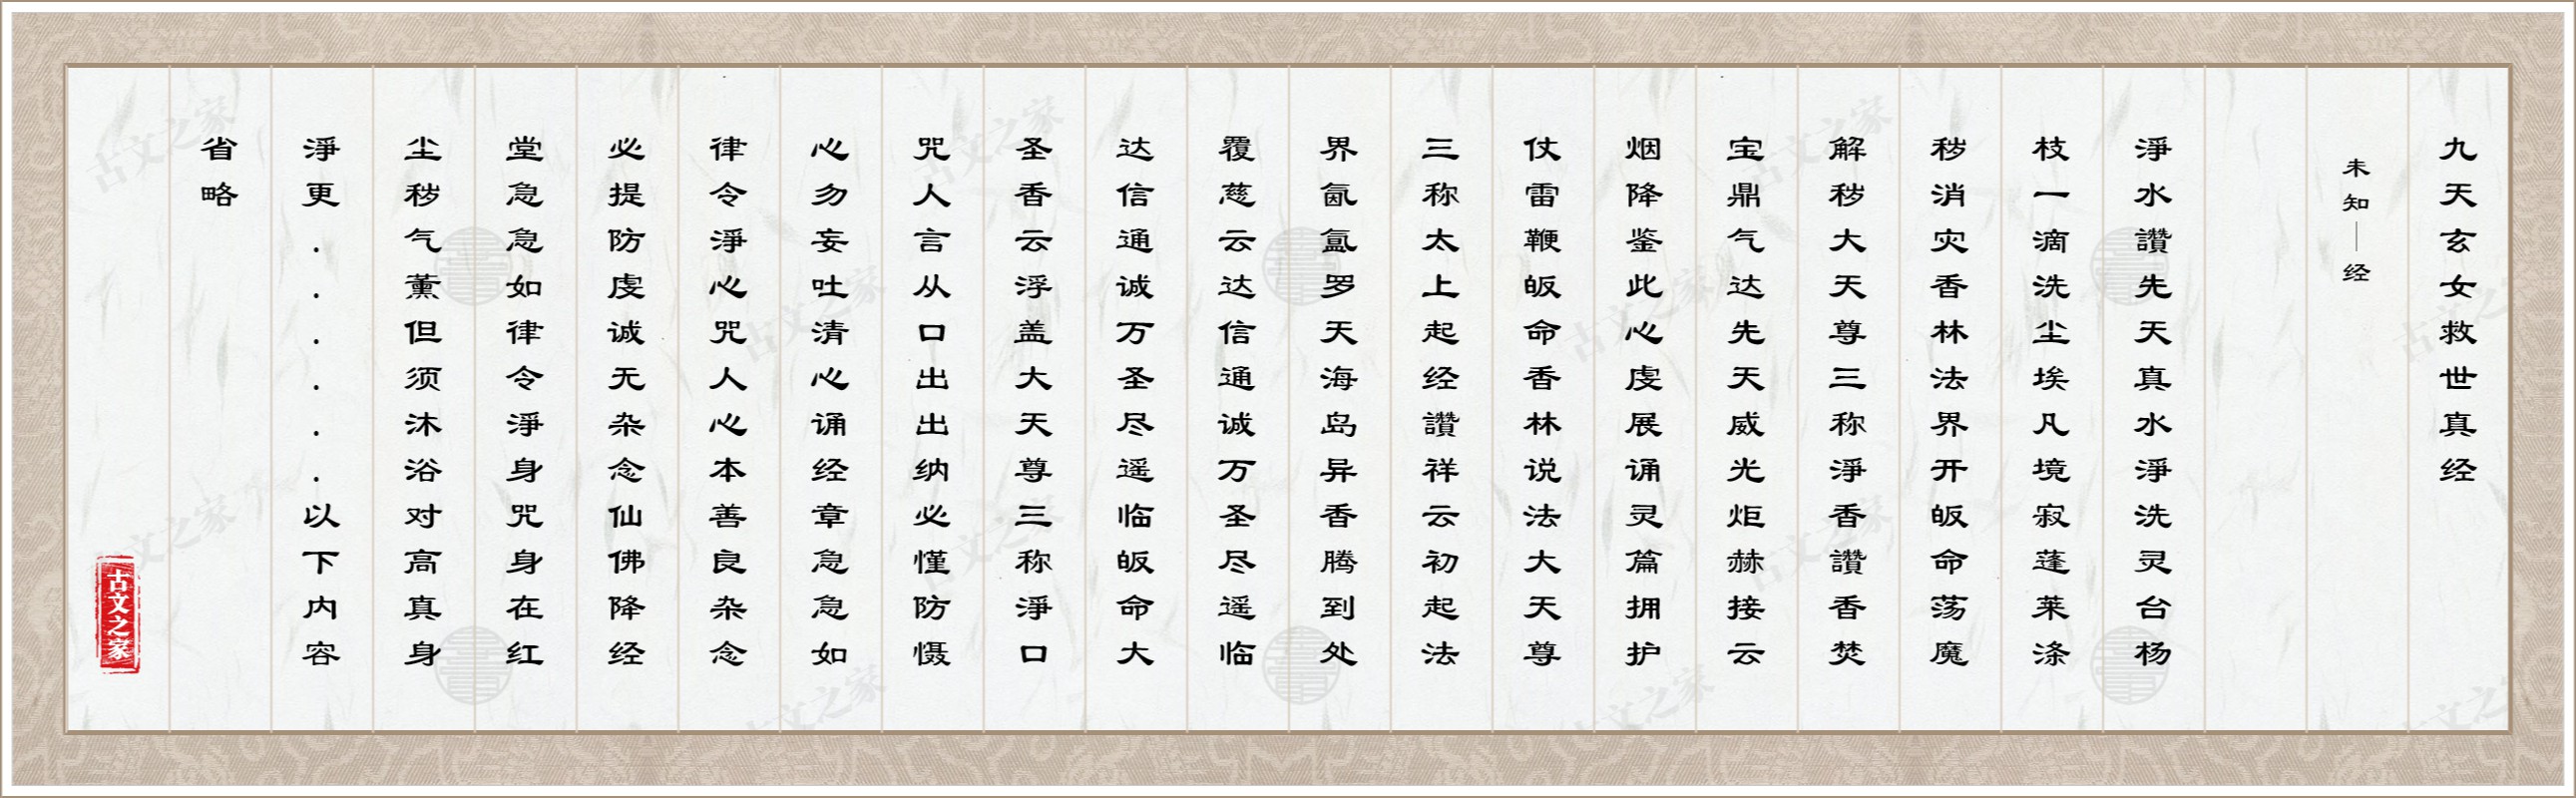 九天玄女救世真经
未知｜经
淨水讚先天真水淨洗灵台杨
枝一滴洗尘埃凡境寂蓬莱涤
秽消灾香林法界开皈命荡魔
解秽大天尊三称淨香讚香焚
宝鼎气达先天威光炬赫接云
烟降鉴此心虔展诵灵篇拥护
仗雷鞭皈命香林说法大天尊
三称太上起经讚祥云初起法
界氤氲罗天海岛异香腾到处
覆慈云达信通诚万圣尽遥临
达信通诚万圣尽遥临皈命大
圣香云浮盖大天尊三称淨口
咒人言从口出出纳必慬防慑
心勿妄吐清心诵经章急急如
律令淨心咒人心本善良杂念
必提防虔诚无杂念仙佛降经
堂急急如律令淨身咒身在红
尘秽气薰但须沐浴对高真身
淨更......以下内容
省略
古文之家